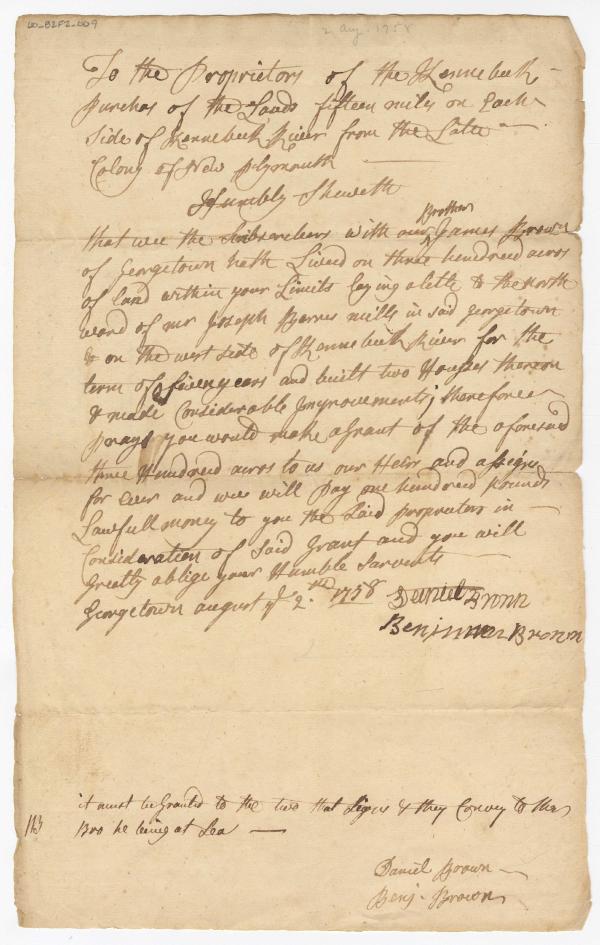 00_B2F2_009
2 Aug. 1758
To the Proprietors of the Kennebeck
Purchas of the Lands fifteen miles on Each
Side of Kennebeck River from the Late
Colony of New Plymouth
Humbly Sheweth
Brother
that wee the Subscrebers with our James Brown
of Georgetown hath Lived on three hundred acros
of land within your Limits laying a lettle to the north
ward of mr Joseph Berrys mills in said georgetown
& on the west side of Kennebeck River for the
term of Sivenyears and built two Houses thereon
& made Considerable Improvements; therefore
prays you would make a Grant of the aforesaid
three Hundred acros to us our Heirs and assigns
for ever and wee will Pay one hundred pounds
Lawfull money to you the Said proprietors in
Consideration of Said Grant and you will
Greetly oblige your Humble Sarvents
Georgetown august ye 2nd 1758
Daniel Brown
Benjamen Brown
it must be Granted to the two that Signs & they Convey to the
Bro he being at Sea
Daniel Brown
Benj. Brown